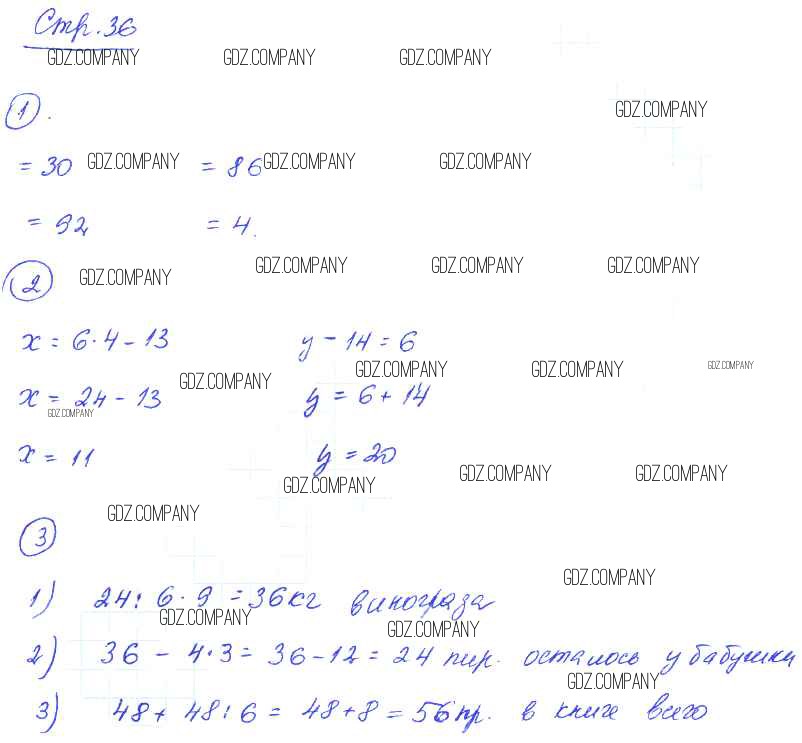 Стр. 36
GDZ.COMPANY GDZ.COMPANY GDZ.COMPANY
1.
GDZ.COMPANY
= 30 GDZ.COMPANY = 86 GDZ.COMPANY GDZ.COMPANY
= 92 = 4.
2 GDZ.COMPANY GDZ.COMPANY GDZ.COMPANY GDZ.COMPANY
x = 6·4 - 13 y - 14 = 6
GDZ.COMPANY GDZ.COMPANY GDZ.COMPANY GDZ.COMPANY
x = 24 - 13 y = 6 + 14
GDZ.COMPANY
x = 11 y = 20
GDZ.COMPANY GDZ.COMPANY GDZ.COMPANY
GDZ.COMPANY
3
GDZ.COMPANY
1) 24 : 6 · 9 = 36 кг винограза
GDZ.COMPANY GDZ.COMPANY
2) 36 - 4·3 = 36 - 12 = 24 пир. осталось у бабушки
GDZ.COMPANY
3) 48 + 48 : 6 = 48 + 8 = 56 пр. в книге всего